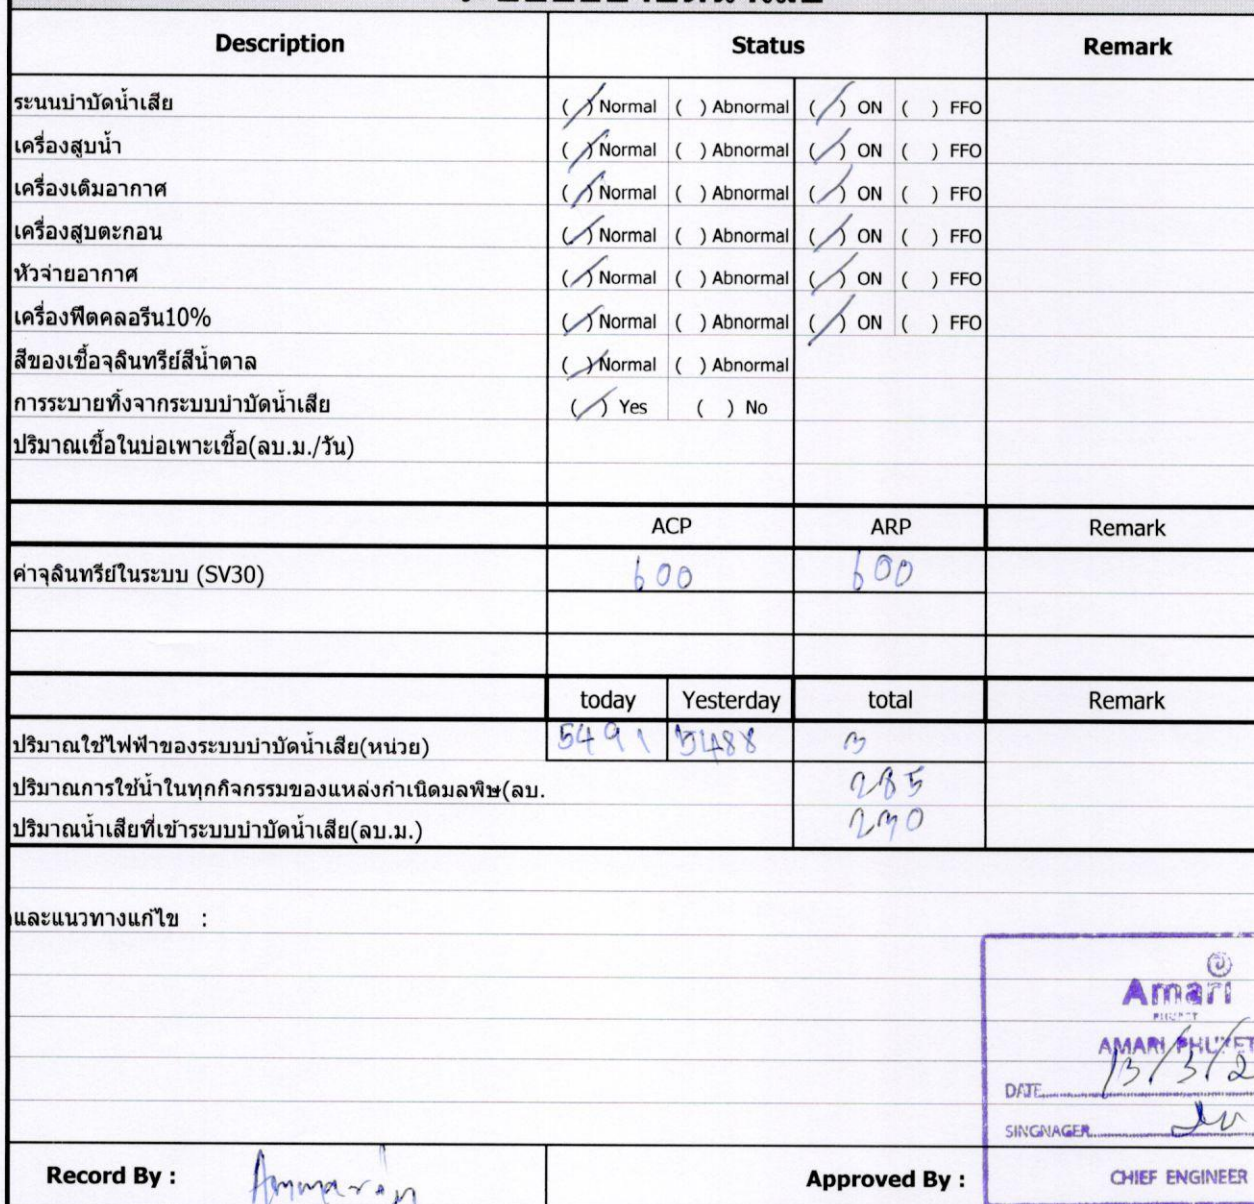 Description Status Remark
ระนนบำบัดน้ำเสีย ( / ) Normal ( ) Abnormal ( / ) ON ( ) FFO
เครื่องสูบน้ำ ( / ) Normal ( ) Abnormal ( / ) ON ( ) FFO
เครื่องเติมอากาศ ( / ) Normal ( ) Abnormal ( / ) ON ( ) FFO
เครื่องสูบตะกอน ( / ) Normal ( ) Abnormal ( / ) ON ( ) FFO
หัวจ่ายอากาศ ( / ) Normal ( ) Abnormal ( / ) ON ( ) FFO
เครื่องฟีตคลอรีน10% ( / ) Normal ( ) Abnormal ( / ) ON ( ) FFO
สีของเชื้อจุลินทรีย์สีน้ำตาล ( / ) Normal ( ) Abnormal
การระบายทิ้งจากระบบบำบัดน้ำเสีย ( / ) Yes ( ) No
ปริมาณเชื้อในบ่อเพาะเชื้อ(ลบ.ม./วัน)
ACP ARP Remark
ค่าจุลินทรีย์ในระบบ (SV30) 600 600
today Yesterday total Remark
ปริมาณใช้ไฟฟ้าของระบบบำบัดน้ำเสีย(หน่วย) 5491 5488 3
ปริมาณการใช้น้ำในทุกกิจกรรมของแหล่งกำเนิดมลพิษ(ลบ. 285
ปริมาณน้ำเสียที่เข้าระบบบำบัดน้ำเสีย(ลบ.ม.) 230
และแนวทางแก้ไข :
Amari
PHUKET
AMARI PHUKET
DATE 13/3/2
SINGNAGER
Record By : Approved By : CHIEF ENGINEER